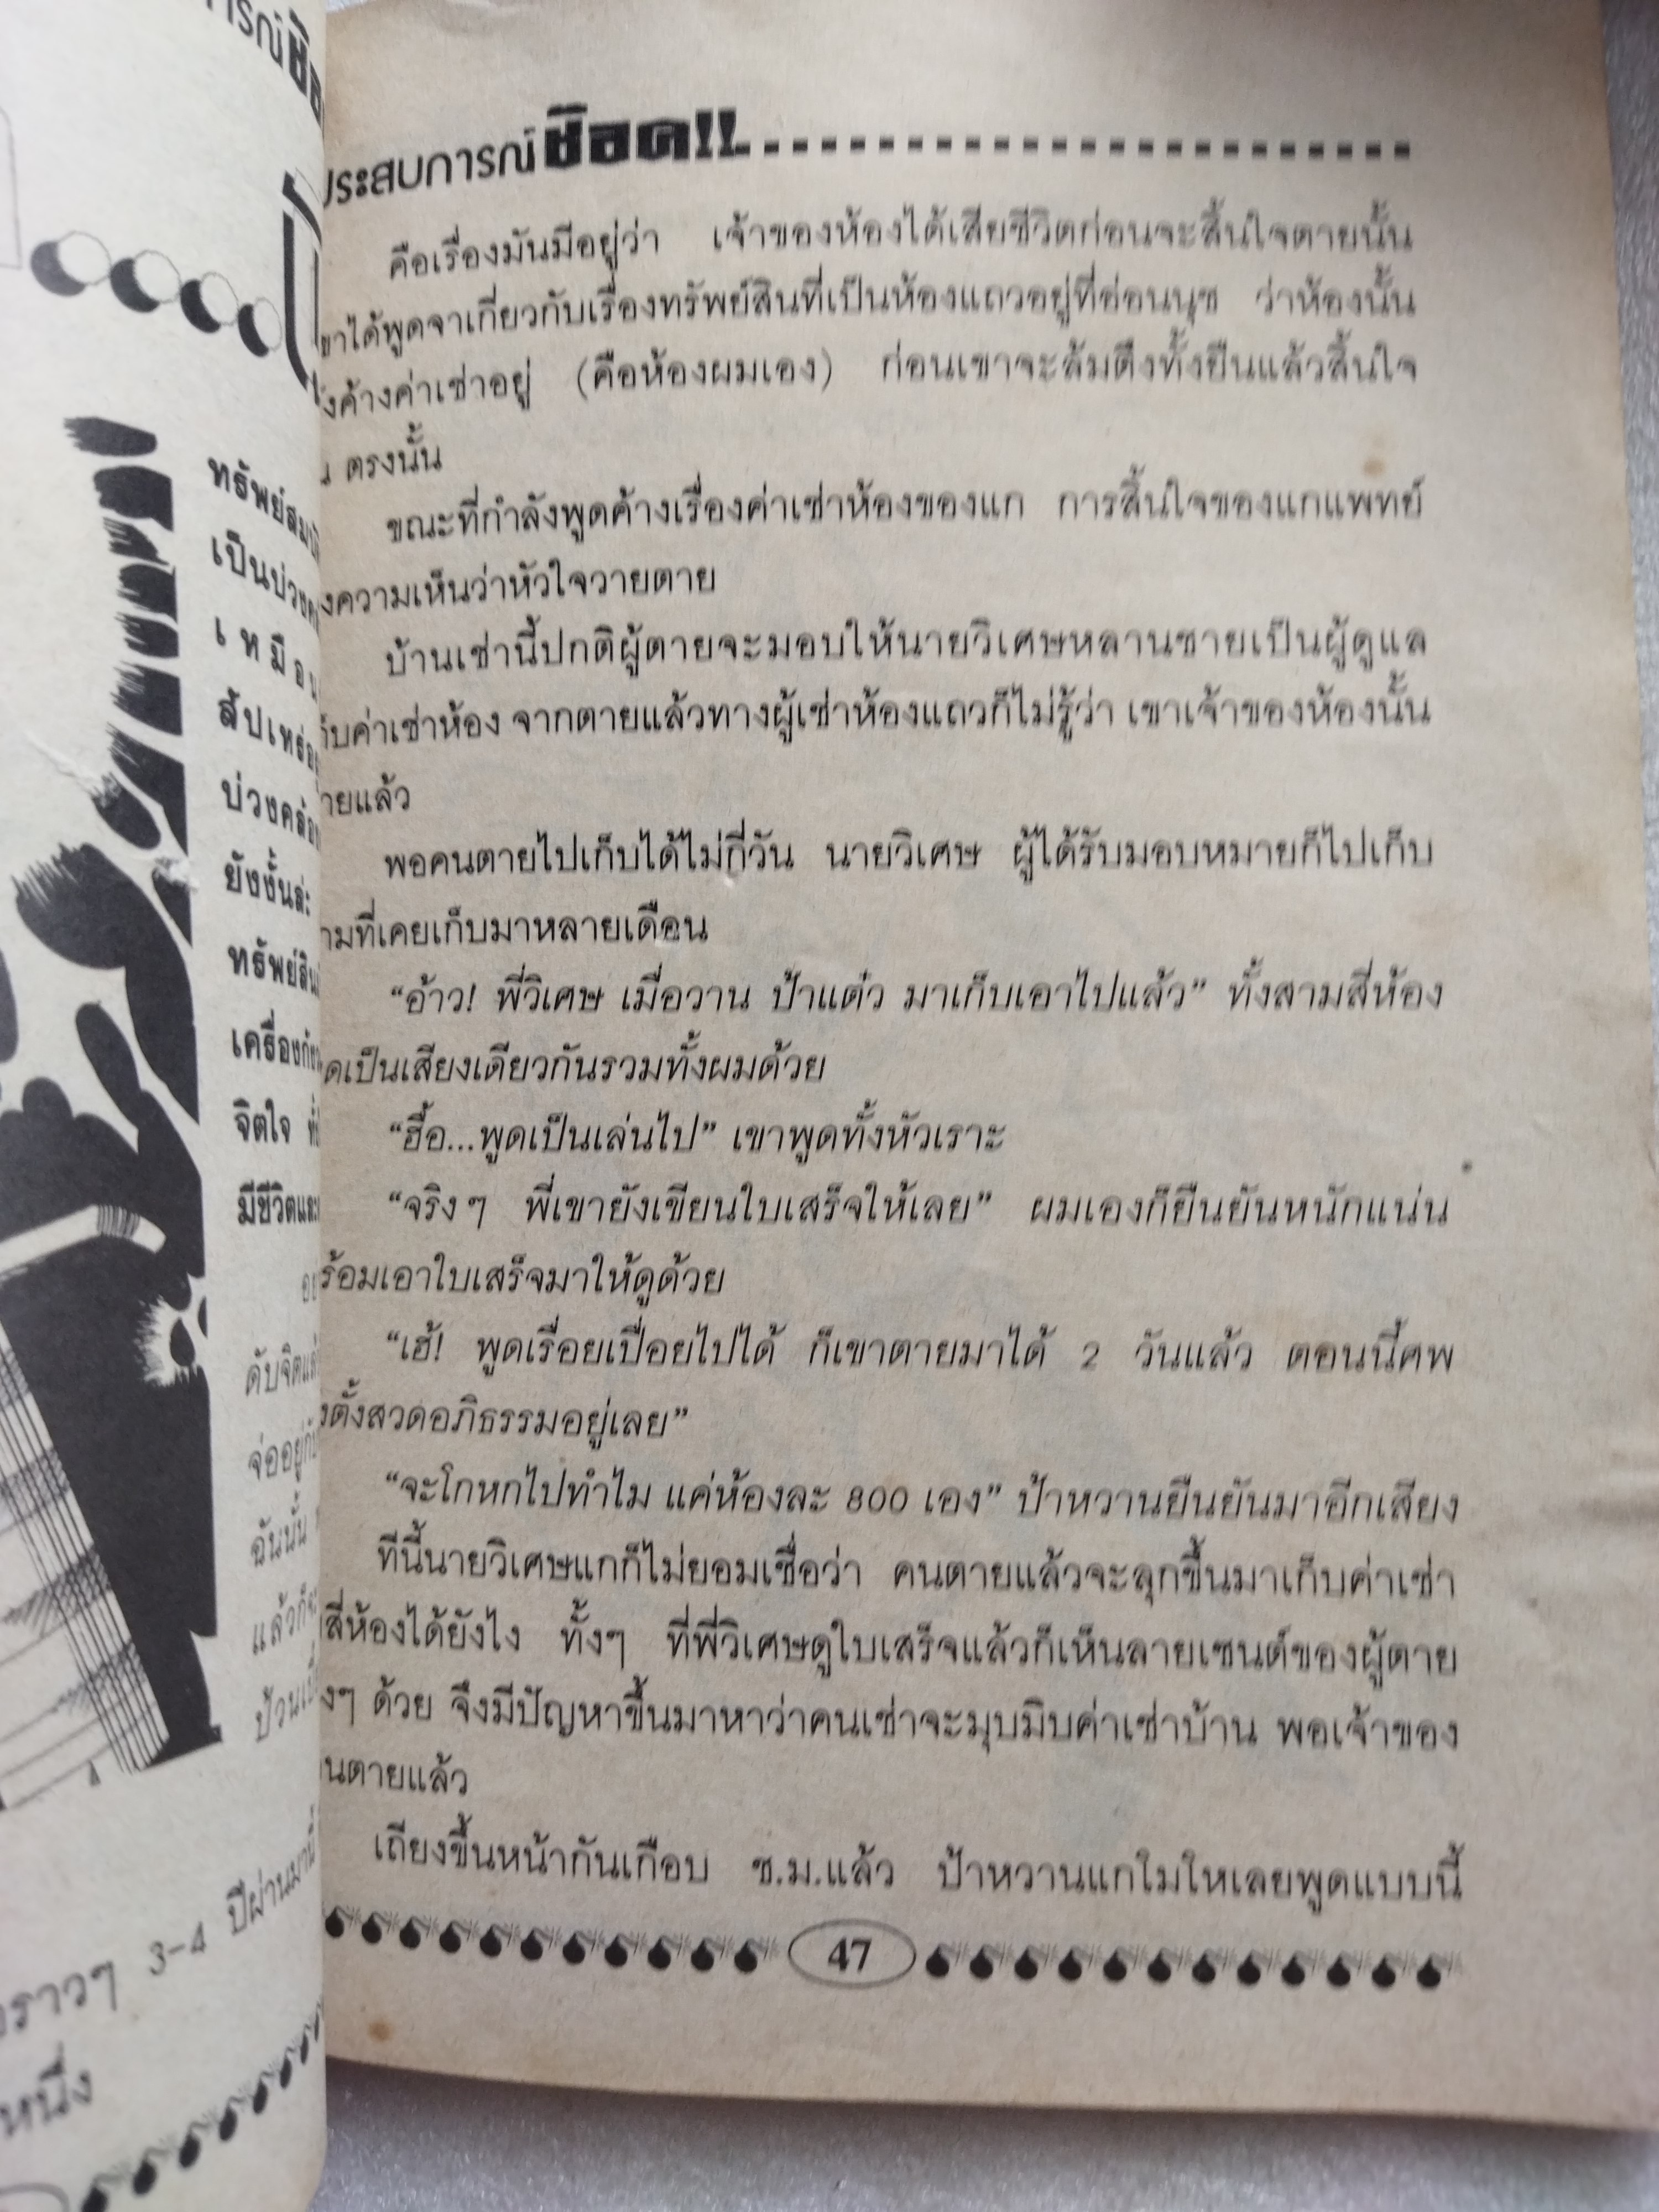 ประสบการณ์ช็อค!!
คือเรื่องมันมีอยู่ว่า เจ้าของห้องได้เสียชีวิตก่อนจะสิ้นใจตายนั้น
ขาได้พูดจาเกี่ยวกับเรื่องทรัพย์สินที่เป็นห้องแถวอยู่ที่อ่อนนุช ว่าห้องนั้น
งค้างค่าเช่าอยู่ (คือห้องผมเอง) ก่อนเขาจะล้มตึงทั้งยืนแล้วสิ้นใจ
ตรงนั้น
ขณะที่กำลังพูดค้างเรื่องค่าเช่าห้องของแก การสิ้นใจของแกแพทย์
งความเห็นว่าหัวใจวายตาย
บ้านเช่านี้ปกติผู้ตายจะมอบให้นายวิเศษหลานชายเป็นผู้ดูแล
ก็บค่าเช่าห้อง จากตายแล้วทางผู้เช่าห้องแถวก็ไม่รู้ว่า เขาเจ้าของห้องนั้น
ายแล้ว
พอคนตายไปเก็บได้ไม่กี่วัน นายวิเศษ ผู้ได้รับมอบหมายก็ไปเก็บ
ามที่เคยเก็บมาหลายเดือน
“อ้าว! พี่วิเศษ เมื่อวาน ป้าแต๋ว มาเก็บเอาไปแล้ว” ทั้งสามสี่ห้อง
ดเป็นเสียงเดียวกันรวมทั้งผมด้วย
“ฮื้อ...พูดเป็นเล่นไป” เขาพูดทั้งหัวเราะ
“จริงๆ พี่เขายังเขียนใบเสร็จให้เลย” ผมเองก็ยืนยันหนักแน่น
ร้อมเอาใบเสร็จมาให้ดูด้วย
“เฮ้! พูดเรื่อยเปื่อยไปได้ ก็เขาตายมาได้ 2 วันแล้ว ตอนนี้ศพ
งตั้งสวดอภิธรรมอยู่เลย”
“จะโกหกไปทำไม แค่ห้องละ 800 เอง” ป้าหวานยืนยันมาอีกเสียง
ทีนี้นายวิเศษแกก็ไม่ยอมเชื่อว่า คนตายแล้วจะลุกขึ้นมาเก็บค่าเช่า
สี่ห้องได้ยังไง ทั้งๆ ที่พี่วิเศษดูใบเสร็จแล้วก็เห็นลายเซนต์ของผู้ตาย
งๆ ด้วย จึงมีปัญหาขึ้นมาหาว่าคนเช่าจะมุบมิบค่าเช่าบ้าน พอเจ้าของ
นตายแล้ว
เถียงขึ้นหน้ากันเกือบ ช.ม.แล้ว ป้าหวานแกโมโหเลยพูดแบบนี้
47
ทรัพย์สม
เป็นบ่วง
เหมือน
สัปเหร่อ
บ่วงคล้อง
ยังงั้นล่ะ
ทรัพย์สิน
เครื่อง
จิตใจ
มีชีวิต
ดับจิต
จ่ออยู่
ฉันนั้น
แล้วก็
ราวๆ 3-4 ปีผ่านมานี้
หนึ่ง